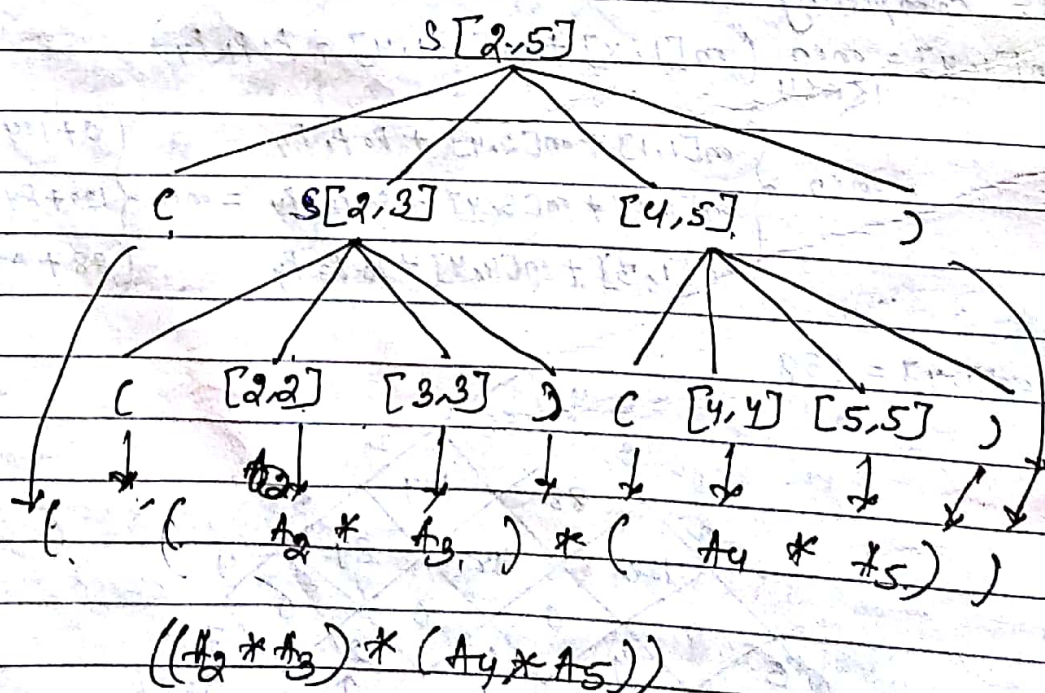 S[2,5]
( S[2,3] [4,5] )
( [2,2] [3,3] ) ( [4,4] [5,5] )
( ( A2 * A3 ) * ( A4 * A5 ) )
((A2 * A3) * (A4 * A5))